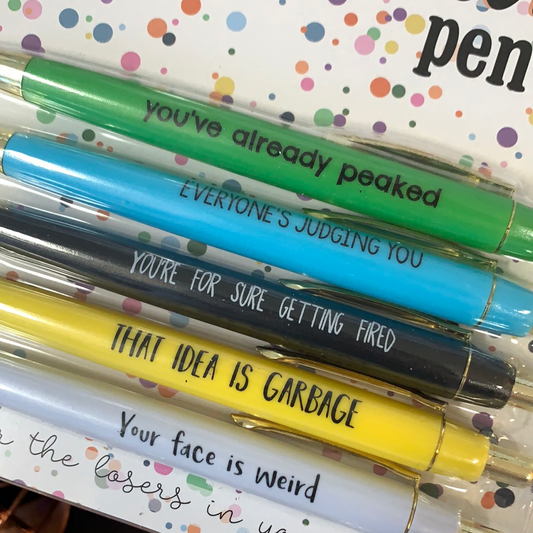 pen
you've already peaked
EVERYONE'S JUDGING YOU
YOU'RE FOR SURE GETTING FIRED
THAT IDEA IS GARBAGE
Your face is weird
the losers in